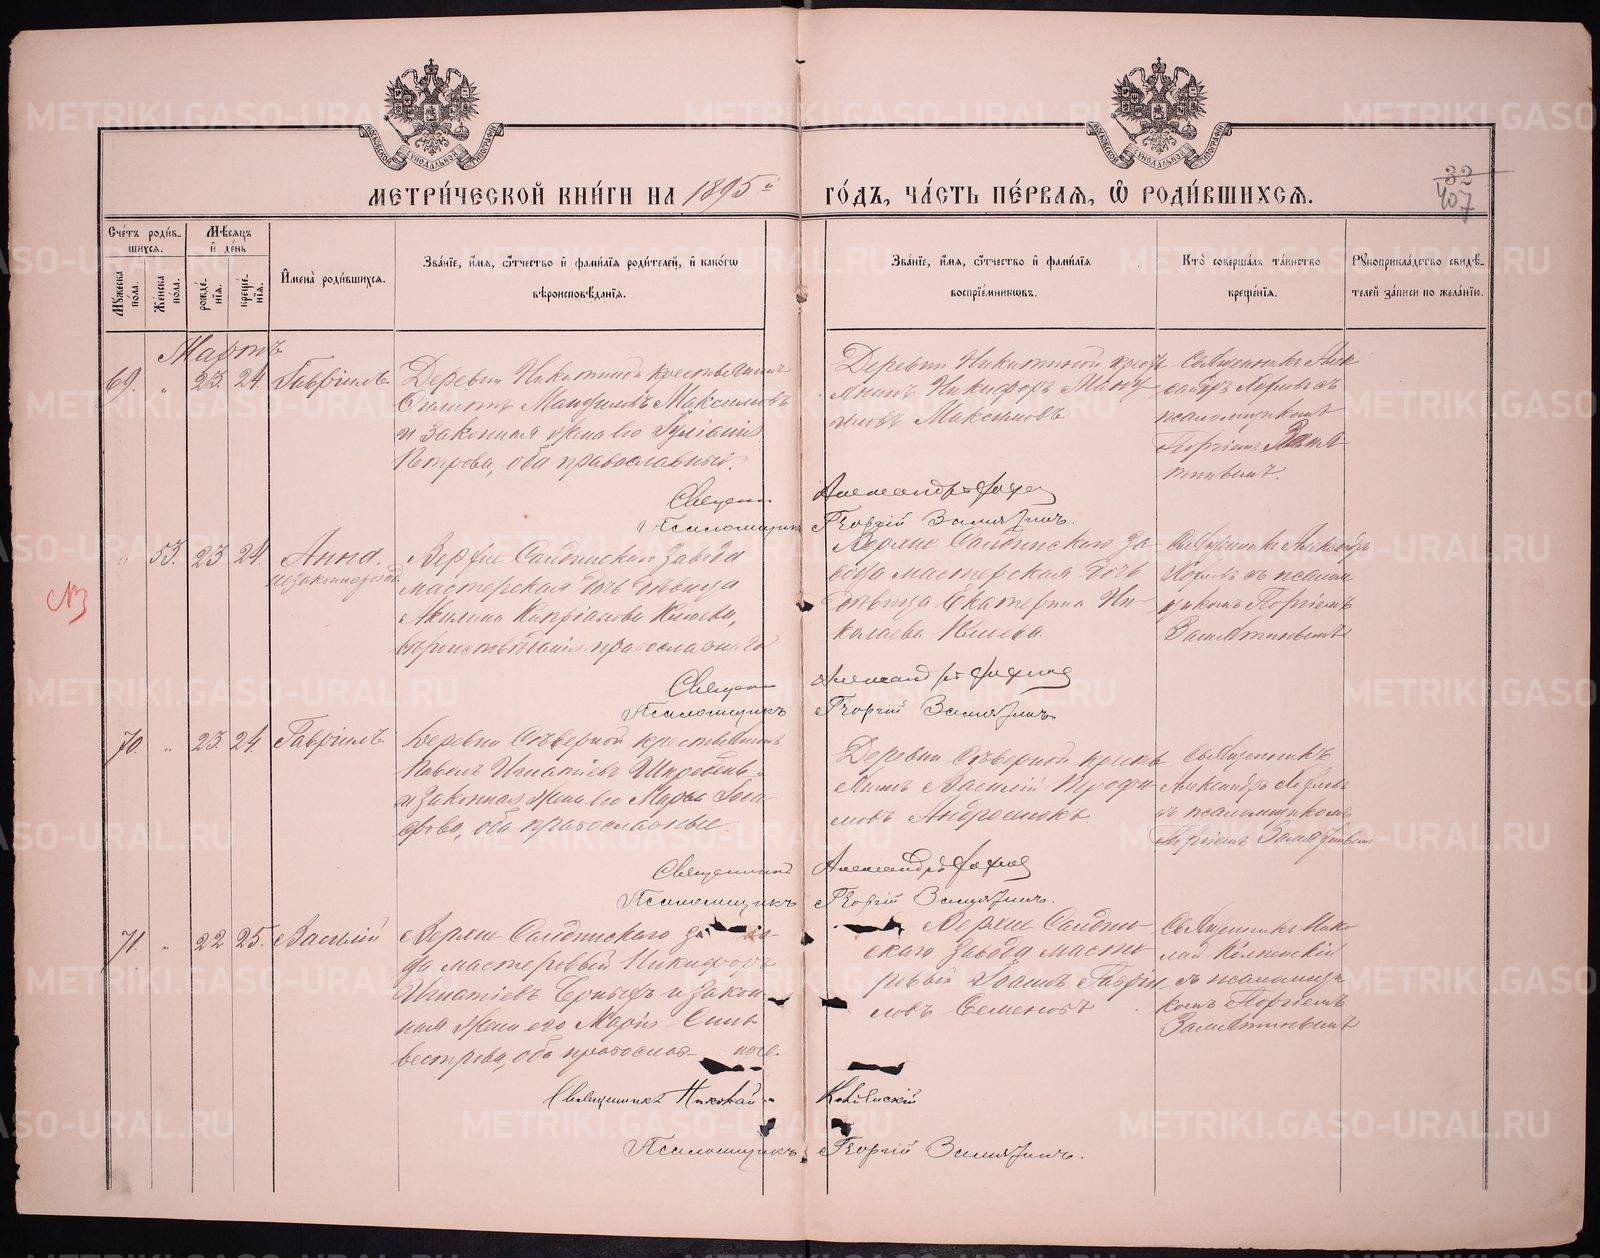 МОСКОВСКОЙ СѴНОДАЛЬНОЙ ТИПОГРАФІИ
МОСКОВСКОЙ СѴНОДАЛЬНОЙ ТИПОГРАФІИ
МЕТРИ́ЧЕСКОЙ КНИ́ГИ НА 1895й ГО́ДЪ, ЧА́СТЬ ПЕ́РВАЯ, Ѿ РОДИ́ВШИХСЯ.
32
407
Сче́тъ роди́в-
шихся.
Му́жеска пола.
Же́нска пола.
Мѣ́сяцъ
и҆ де́нь
рожде́-
нїѧ.
креще́-
нїѧ.
И҆мена̀ роди́вшихся.
Зва́нїе, и҆́мя, ѻ҆́тчество и҆ фами́лїя роди́телей, и҆ како́гѡ
вѣроисповѣ́данїя.
Зва́нїе, и҆́мя, ѻ҆́тчество и҆ фами́лїя
воспрїе́мникѡвъ.
Кто̀ соверша́лъ та́инство
креще́нїя.
Рꙋкоприкла́дство свидѣ́-
телей за́писи по жела́нїю.
Мартъ
69. „ 23. 24 Гавріилъ
Деревни Никитиной крестьянинъ
Мануиловъ Максимовъ
и законная жена его Іуліанія
Петрова, оба православныи.
Деревни Никитиной кресть
янинъ Никифоръ Ману
иловъ Максимовъ
Священникъ Алек
сандръ съ
псаломщикомъ
Георгіемъ Замя
тинымъ.
Священ. Александръ
Псаломщикъ Георгій Замятинъ.
„ 53. 23 24. Анна
незаконнорожд.
Верхне Салдинскаго завода
мастерская дочь девица
Акилина Кипріанова
вѣроисповѣданія православнаго
Верхне Салдинскаго за
вода мастерская дочь
девица Екатерина Ни
колаева
Священникъ Александръ
съ псалом
щикомъ Георгіемъ
Замятинымъ
Священ. Александръ
Псаломщикъ Георгій Замятинъ.
70. „ 23. 24. Гавріилъ
Деревни Сѣверной крестьянинъ
Павелъ Игнатіевъ
и законная жена его Марѳа
оба православные.
Деревни Сѣверной кресть
янинъ Василій Трофи
мовъ Андроновъ.
Священникъ
Александръ
съ псаломщикомъ
Георгіемъ Замятинымъ
Священникъ Александръ
Псаломщикъ Георгій Замятинъ.
71. „ 22 25. Василій
Верхне Салдинскаго за-
да мастеровый Никифоръ
Игнатіевъ и закон-
ная жена его Марія Силь
вестрова, оба правосла-ные.
Верхне Салдин
скаго завода масте
ровый Іоаннъ Гаврі
ловъ Семеновъ
Священникъ Нико
лай
съ псаломщи
комъ Георгіемъ
Замятинымъ
Священникъ Николай
Псаломщикъ Георгій Замятинъ.
METRIKI.GASO-URAL.RU